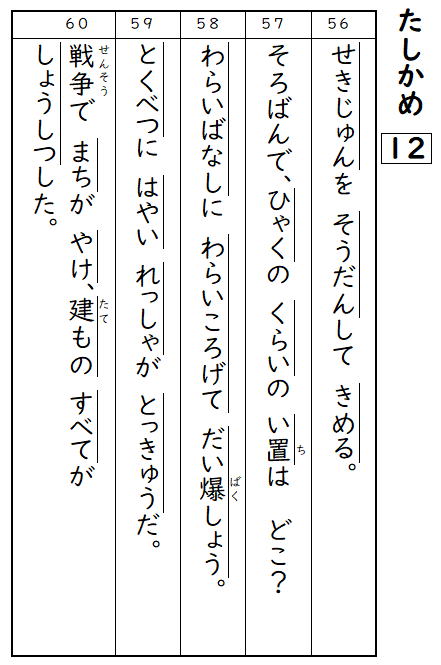 たしかめ
12
56
せきじゅんを そうだんして きめる。
57
そろばんで、ひゃくの くらいの い置は どこ?
ち
58
わらいばなしに わらいころげて だい爆しょう。
ばく
59
とくべつに はやい れっしゃが とっきゅうだ。
60
戦争で まちが やけ、建もの すべてが
せんそう
たて
しょうしつした。